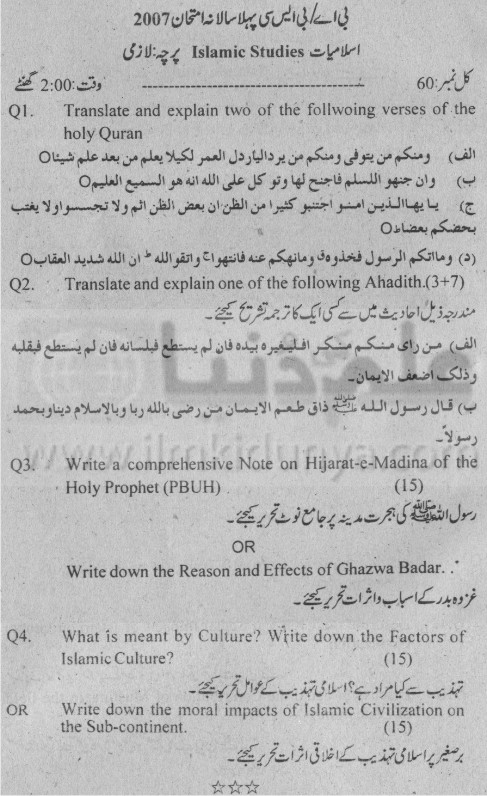 بی اے/بی ایس سی پہلا سالانہ امتحان 2007
اسلامیات Islamic Studies پرچہ: لازمی
کل نمبر: 60 وقت: 2:00 گھنٹے
Q1. Translate and explain two of the follwoing verses of the
holy Quran
الف) ومنکم من یتوفی ومنکم من یردالیاردل العمر لکیلا یعلم من بعد علم شیئاO
ب) وان جنهو اللسلم فاجنح لها وتو کل علی الله انه هو السمیع العلیمO
ج) یا یهاالذین امنو اجتنبو کثیرا من الظن ان بعض الظن اثم ولا تجسسواولا یغتب
بحضکم بعضاO
(د) وماانکم الرسول فخذوه ق ومانهکم عنه فانتهواج واتقو الله ط ان الله شدید العقابO
Q2. Translate and explain one of the following Ahadith.(3+7)
مندرجہ ذیل احادیث میں سے کسی ایک کا ترجمہ تشریح کیجئے۔
الف) من رای منکم منکر افلیغیره بیده فان لم یستطع فبلسانه فان لم یستطع فبقلبه
وذلک اضعف الایمان۔
ب) قال رسول الله ﷺ ذاق طعم الایمان من رضی بالله ربا وبالاسلام دیناوبحمد
رسولاً۔
Q3. Write a comprehensive Note on Hijarat-e-Madina of the
Holy Prophet (PBUH) (15)
رسول اللہ ﷺ کی ہجرت مدینہ پر جامع نوٹ تحریر کیجئے۔
OR
Write down the Reason and Effects of Ghazwa Badar.
غزوہ بدر کے اسباب و اثرات تحریر کیجئے۔
Q4. What is meant by Culture? Write down the Factors of
Islamic Culture? (15)
تہذیب سے کیا مراد ہے؟ اسلامی تہذیب کے عوامل تحریر کیجئے۔
OR Write down the moral impacts of Islamic Civilization on
the Sub-continent. (15)
برصغیر پر اسلامی تہذیب کے اخلاقی اثرات تحریر کیجئے۔
علم دنیا
www.ilmkidunya.com